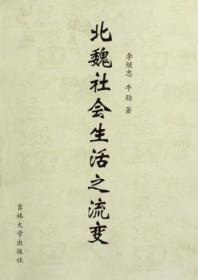 北魏社会生活之流变
李继忠 牛劲 著
吉林大学出版社